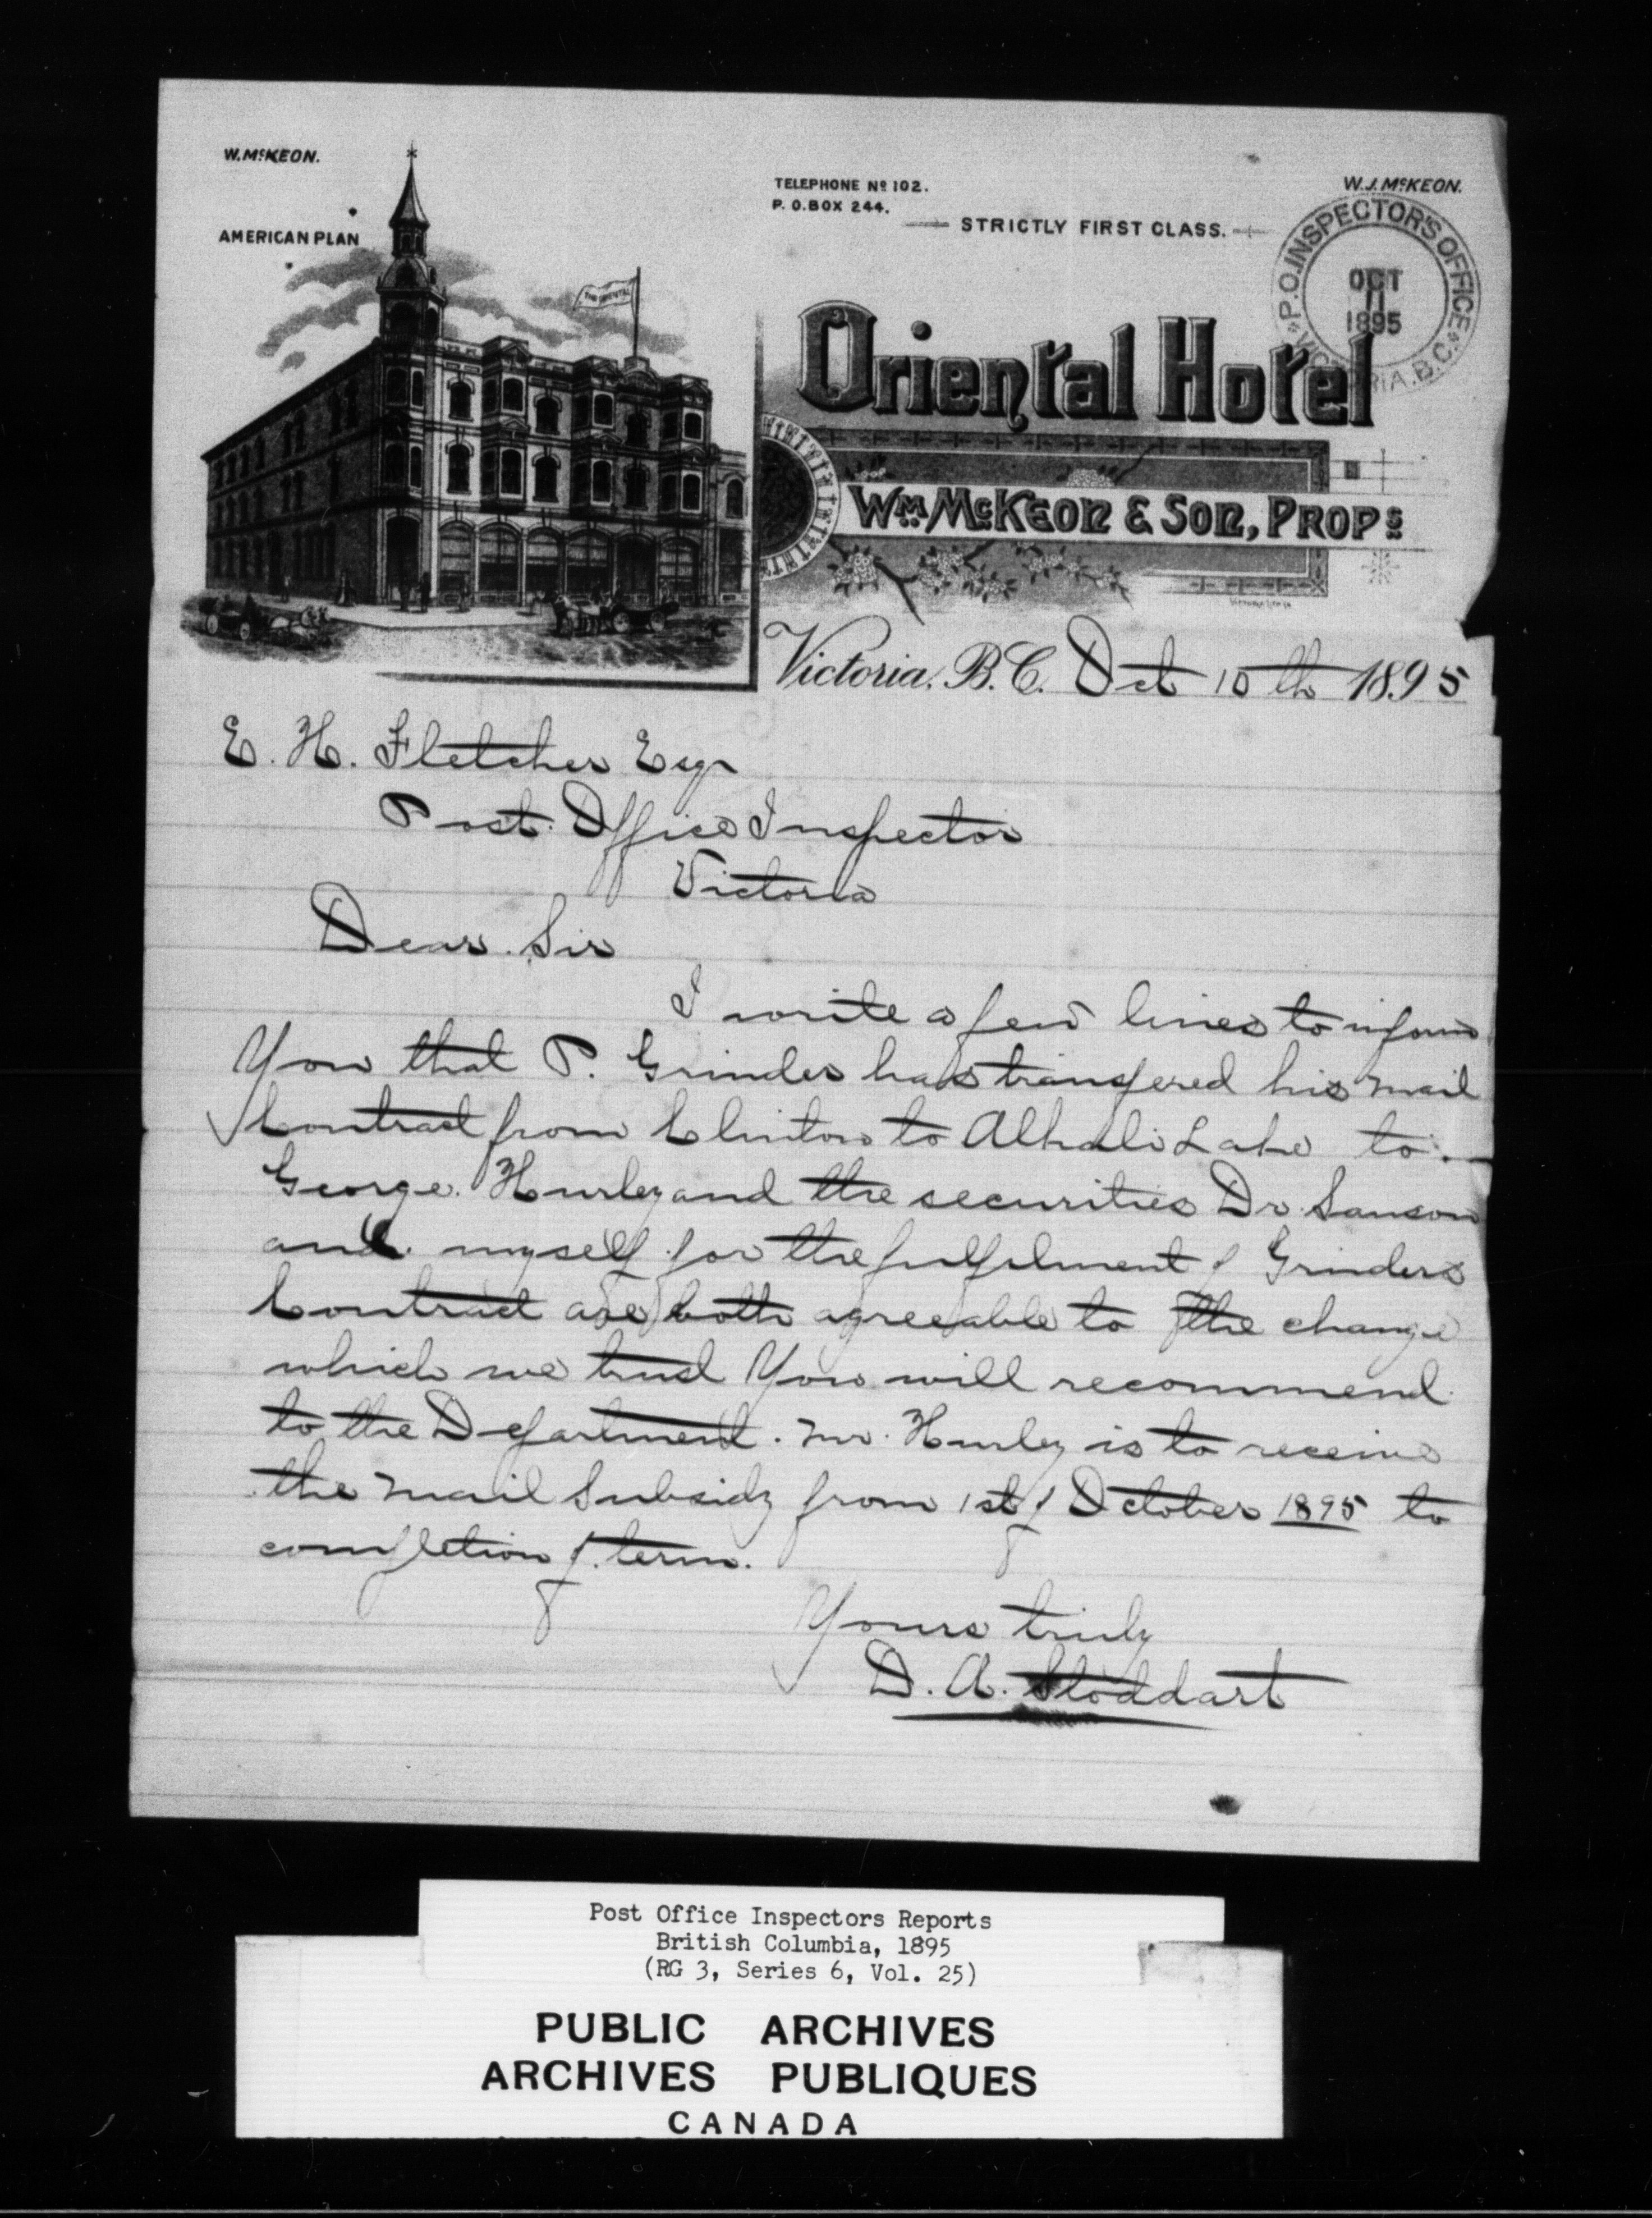 W. McKEON.
AMERICAN PLAN
THE ORIENTAL
TELEPHONE No 102.
P. O. BOX 244.
STRICTLY FIRST CLASS.
W. J. McKEON.
P.O. INSPECTOR'S OFFICE
OCT
11
1895
VICTORIA. B.C.
Oriental Hotel
Wm McKeon & Son, Props
Victoria, B.C. Oct 10th 1895
E. H. Fletcher Esqr
Post. Office Inspector
Victoria
Dear. Sir
I write a few lines to inform
You that P. Grinder has transfered his mail
Contract from Clinton to Alkali Lake to.
George. Hurley and the securities Dr. Sanson
and. myself for the fulfilment of Grinders
Contract are both agreeable to the change
which we trust You will recommend
to the Department. Mr. Hurley is to receive
the Mail Subsidy from 1st of October 1895 to
completion of term.
Yours truly
D. A. Stoddart
Post Office Inspectors Reports
British Columbia, 1895
(RG 3, Series 6, Vol. 25)
PUBLIC ARCHIVES
ARCHIVES PUBLIQUES
CANADA